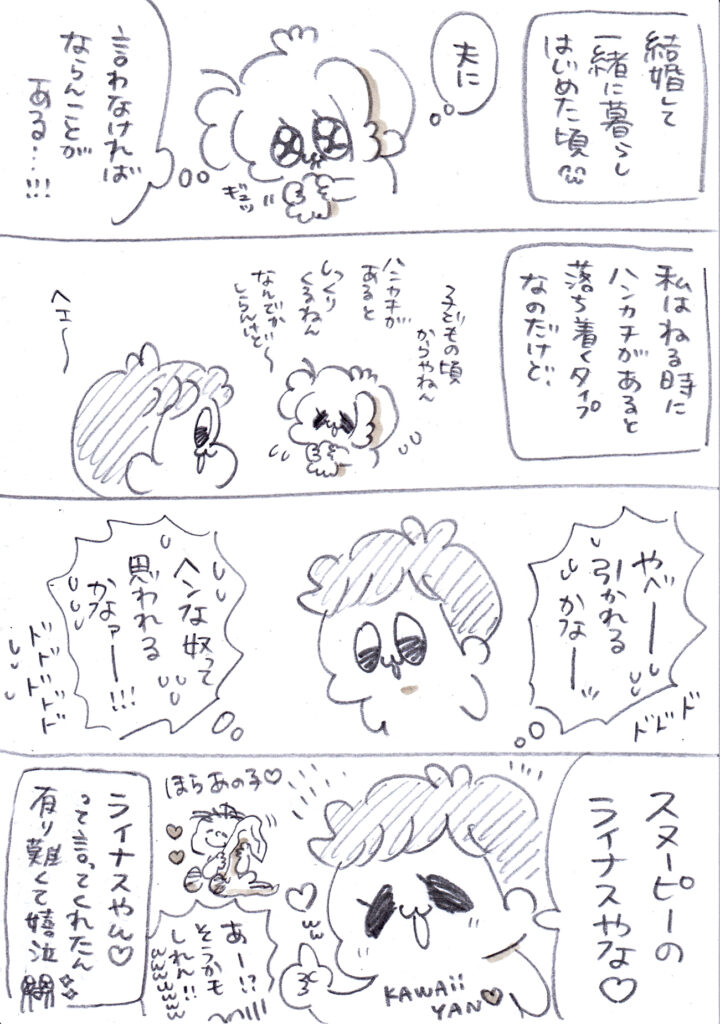 結婚して
一緒に暮らし
はじめた頃
夫に
言わなければ
ならんことが
ある…!!!
ギュッ
私はねる時に
ハンカチがあると
落ち着くタイプ
なのだけど、
子どもの頃
からやねん
ハンカチが
あると
しっくり
くるねん
なんでか
しらんけど〜
ヘェ〜
やべーー
引かれる
かなー
ドドド
ヘンな奴って
思われる
かなァーー!!!
ドドドド
ドドド
スヌーピーの
ライナスやな♡
KAWAii
YAN♡
ほらあの子♡
あー!?
そうかも
しれん!!
wwwww
ライナスやん♡
って言ってくれたん
有り難くて嬉泣